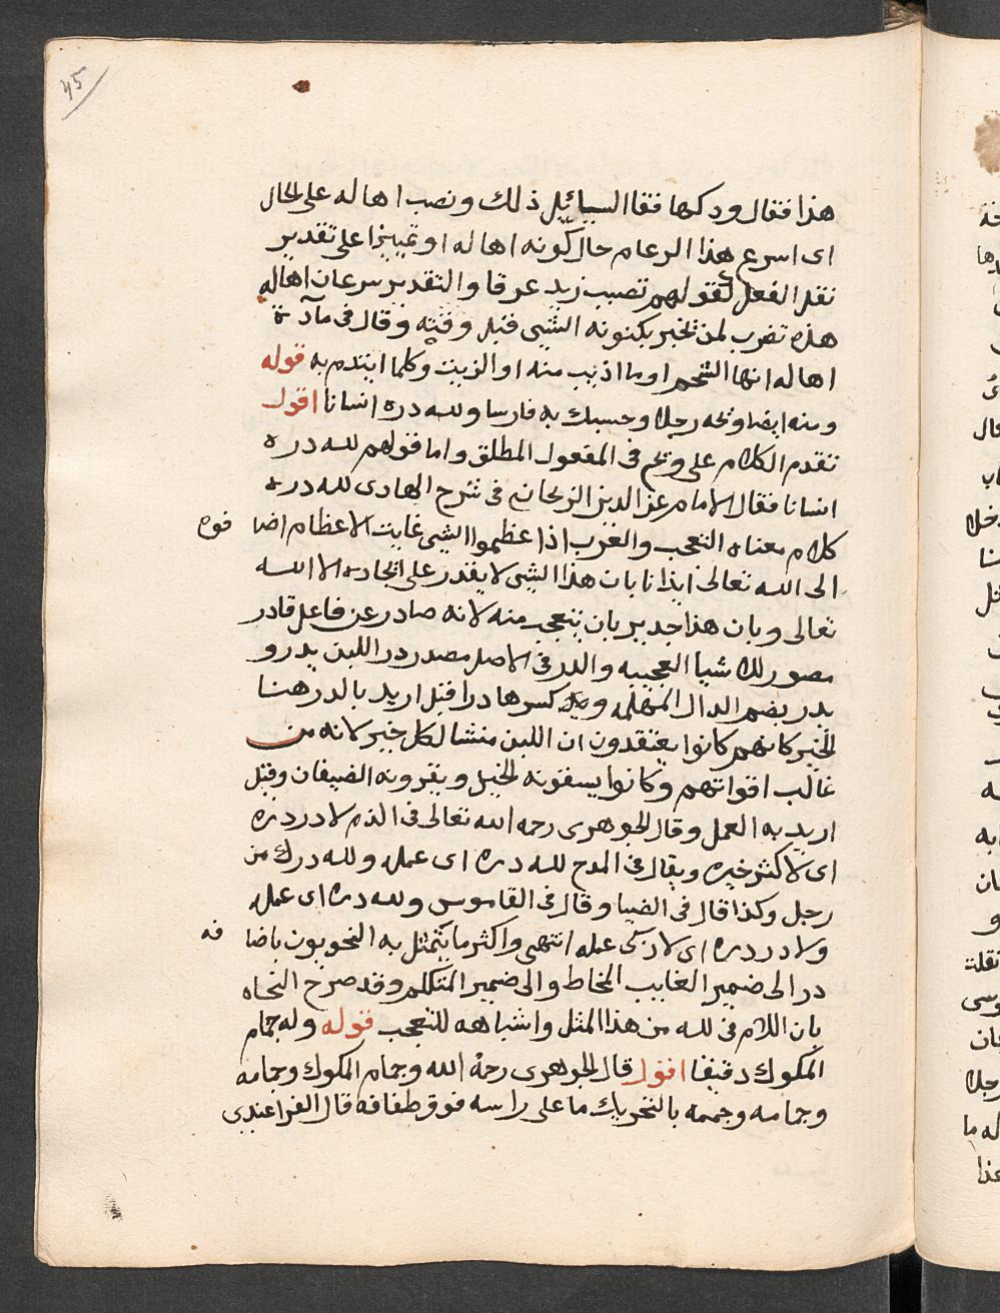 45
هذا فقال ودكها فقا السائل ذلك ونصب اهاله على الحال
اى اسرع هذا الرعام حال كونه اهاله او تمييزا على تقدير
نقل الفعل كقولهم تصبب زيد عرقا والتقدير سرعان اهاله
هذه تضرب لمن تخبر بكنونه الشى قبل وقته وقال فى مآدة
اهاله انها الشحم او ما اذيب منه او الزيت وكلما ايتدم به قوله
ومنه ايضا وتحه رجلا وحسبك به فارسا ولله دره انسانا اقول
تقدم الكلام على ويح فى المفعول المطلق واما قولهم لله دره
انسانا فقال الامام عز الدين الزنجانى فى شرح الهادى لله دره
كلام معناه التعجب والعرب اذا عظموا الشى غايت الاعظام اضا فوه
الى الله تعالى ايذانا بان هذا الشى لا يقدر على ايجاده الا الله
تعالى وبان هذا جدير بان يتعجب منه لانه صادر عن فاعل قادر
مصور للاشيا العجيبه والدر فى الاصل مصدر در اللبن يدر و
يدر بضم الدال المهمله وكسرها درا قبل اريد بالدر هنا
الخير كانهم كانوا يعتقدون ان اللبن منشا لكل خير لانه من
غالب اقواتهم وكانوا يسقونه الخيل ويقرونه الضيفان وقيل
اريد به العمل وقال الجوهرى رحمه الله تعالى فى الذم لا در دره
اى لا كثر خيره ويقال فى المدح لله دره اى عمله ولله درك من
رجل وكذا قال فى الضيا وقال فى القاموس ولله دره اى عمله
ولا در دره اى لا زكى عمله انتهى واكثر ما يتمثل به النحويون باضا فه
در الى ضمير الغايب المخاط والى ضمير المتكلم وقد صرح النحاه
بان اللام فى لله من هذا المثل واشباهه للتعجب قوله وله جمام
المكوك دقيقا اقول قال الجوهرى رحمه الله وجمام المكوك وجمامه
وجمامه وجممه بالتحريك ما على راسه فوق طفافه قال الفرا عندى